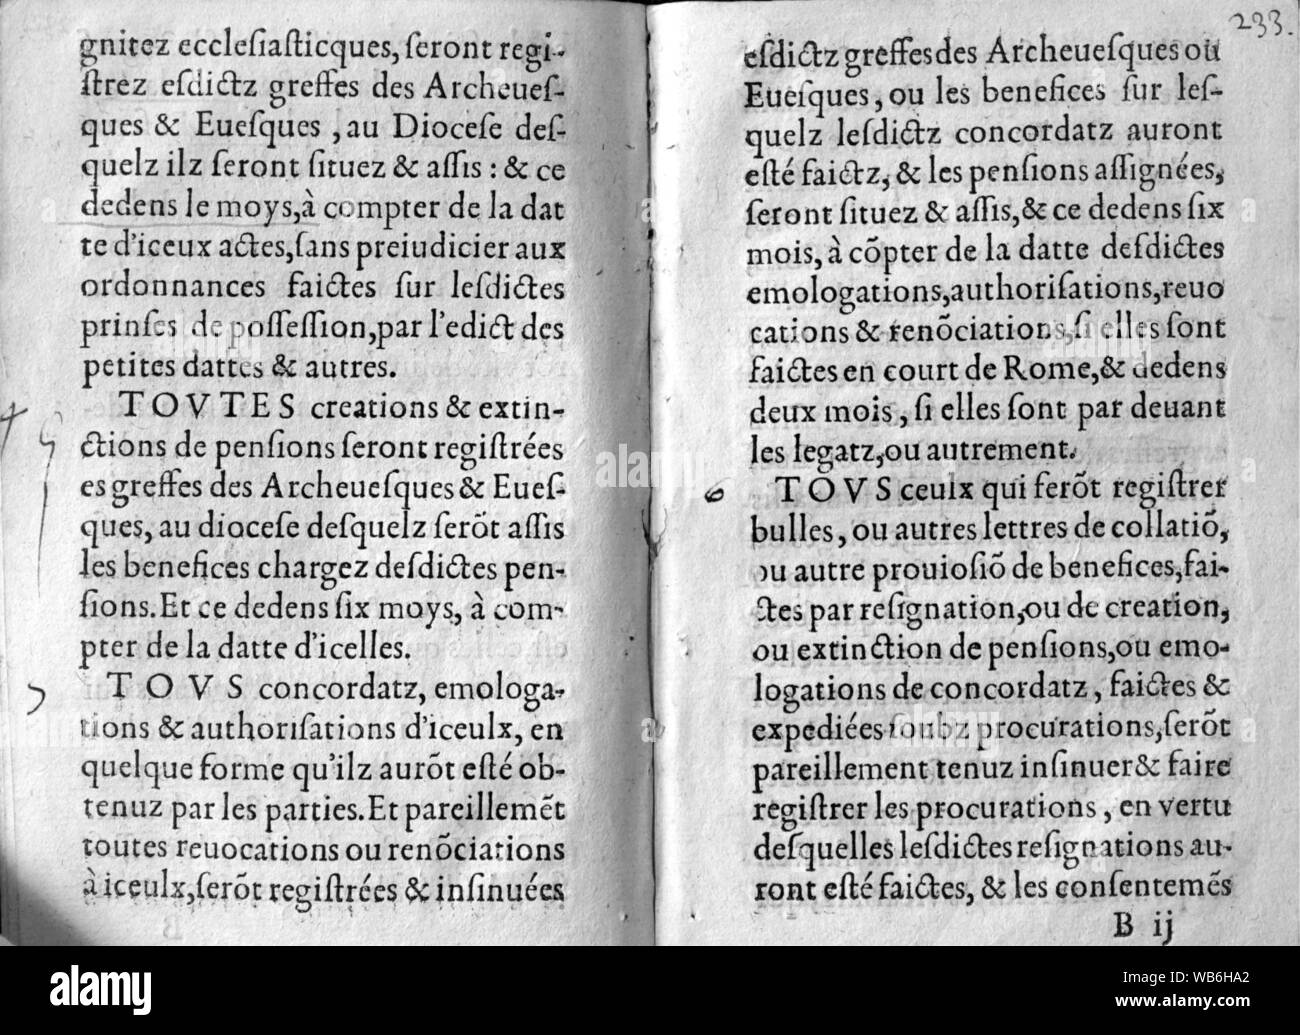 gnitez ecclesiasticques, seront regi-
strez esdictz greffes des Archeues-
ques & Euesques , au Diocese des-
quelz ilz seront situez & assis : & ce
dedens le moys, à compter de la dat
te d'iceux actes, sans preiudicier aux
ordonnances faictes sur lesdictes
prinses de possession, par l'edict des
petites dattes & autres.
TOVTES creations & extin-
ctions de pensions seront registrées
es greffes des Archeuesques & Eues-
ques, au diocese desquelz serõt assis
les benefices chargez desdictes pen-
sions. Et ce dedens six moys, à com-
pter de la datte d'icelles.
TOVS concordatz, emologa-
tions & authorisations d'iceulx, en
quelque forme qu'ilz aurõt esté ob-
tenuz par les parties. Et pareillemẽt
toutes reuocations ou renõciations
à iceulx, serõt registrées & insinuées
233.
esdictz greffes des Archeuesques ou
Euesques, ou les benefices sur les-
quelz lesdictz concordatz auront
esté faictz, & les pensions assignées,
seront situez & assis, & ce dedens six
mois, à cõpter de la datte desdictes
emologations, authorisations, reuo
cations & renõciations, si elles sont
faictes en court de Rome, & dedens
deux mois, si elles sont par deuant
les legatz, ou autrement.
6 TOVS ceulx qui ferõt registrer
bulles, ou autres lettres de collatiõ,
ou autre prouiosiõ de benefices, fai-
ctes par resignation, ou de creation,
ou extinction de pensions, ou emo-
logations de concordatz, faictes &
expediées soubz procurations, serõt
pareillement tenuz insinuer & faire
registrer les procurations, en vertu
desquelles lesdictes resignations au-
ront esté faictes, & les consentemẽs
B ij
alamy
alamy
Image ID: WB6HA2
www.alamy.com